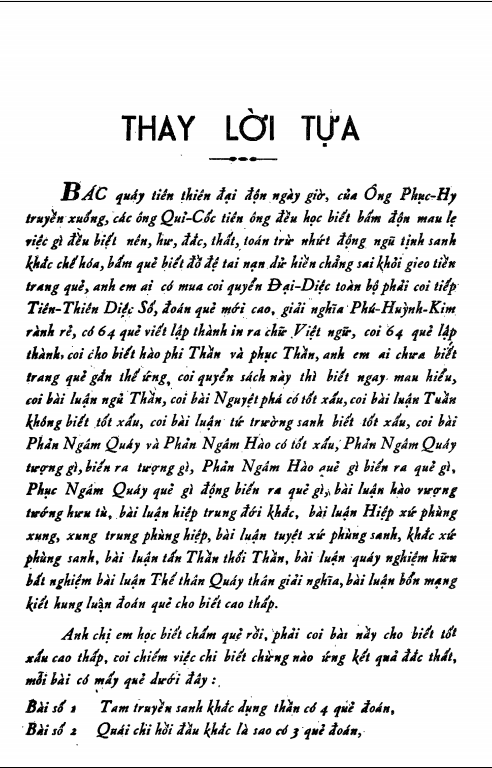 THAY LỜI TỰA
BÁC quáy tiên thiên đại độn ngày giờ, của Ông Phục-Hy
truyền xuống, các ông Qui-Cốc tiên ông đều học biết bấm độn mau lẹ
việc gì đều biết nên, hư, đắc, thất, toán trừ nhứt động ngũ tịnh sanh
khắc chế hóa, bấm quẻ biết đồ đệ tai nạn dữ hiền chẳng sai khỏi gieo tiền
trang quẻ, anh em ai có mua coi quyển Đại-Diệc toàn bộ phải coi tiếp
Tiên-Thiên Diệc Số, đoán quẻ mới cao, giải nghĩa Phú-Huỳnh-Kim
rành rẽ, có 64 quẻ viết lập thành in ra chữ Việt ngữ, coi 64 quẻ lập
thành, coi cho biết hào phi Thần và phục Thần, anh em ai chưa biết
trang quẻ gắn thế ứng, coi quyển sách này thì biết ngay mau hiểu,
coi bài luận ngũ Thần, coi bài Nguyệt phá có tốt xấu, coi bài luận Tuần
không biết tốt xấu, coi bài luận tứ trường sanh biết tốt xấu, coi bài
Phản Ngâm Quáy và Phản Ngâm Hào có tốt xấu, Phản Ngâm Quáy
tượng gì, biến ra tượng gì, Phản Ngâm Hào quẻ gì biến ra quẻ gì,
Phục Ngâm Quáy quẻ gì động biến ra quẻ gì, bài luận hào vượng
tướng hưu tù, bài luận hiệp trung đới khắc, bài luận Hiệp xứ phùng
xung, xung trung phùng hiệp, bài luận tuyệt xứ phùng sanh, khắc xứ
phùng sanh, bài luận tấn Thần thối Thần, bài luận quáy nghiệm hữu
bất nghiệm bài luận Thế thân Quáy thân giải nghĩa, bài luận bổn mạng
kiết hung luận đoán quẻ cho biết cao thấp.
Anh chị em học biết chấm quẻ rồi, phải coi bài nầy cho biết tốt
xấu cao thấp, coi chiếm việc chi biết chừng nào ứng kết quả đắc thất,
mỗi bài có mấy quẻ dưới đây :
Bài số 1 Tam truyền sanh khắc dụng thần có 4 quẻ đoán,
Bài số 2 Quái chi hồi đầu khắc là sao có 3 quẻ đoán,